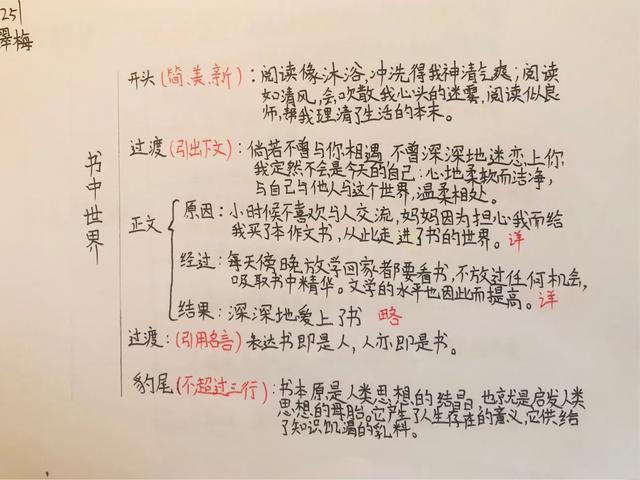 25
翠梅
书中世界
开头(简、美、新):阅读像沐浴,冲洗得我神清气爽;阅读
如清风,会吹散我心头的迷雾,阅读似良
师,帮我理清了生活的本末。
过渡(引出下文):倘若不曾与你相遇,不曾深深地迷恋上你,
我定然不会是今天的自己:心地柔软而洁净,
与自己与他人与这个世界,温柔相处。
正文
原因:小时候不喜欢与人交流,妈妈因为担心我而给
我买了本作文书,从此走进了书的世界。详
经过:每天傍晚放学回家者都要看书,不放过任何机会,
吸取书中精华。文学的水平也因此而提高。详
结果:深深地爱上了书 略
过渡:(引用名言)表达书即是人,人亦即是书。
豹尾(不超过三行):书本原是人类思想的结晶,也就是启发人类
思想的母胎。它产生了人生存在的意义,它供给
了知识饥渴的乳料。